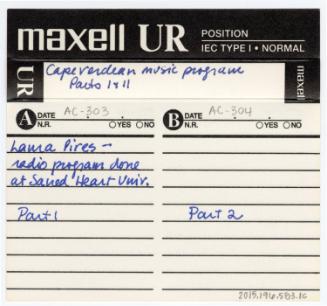 maxell UR POSITION
IEC TYPE I • NORMAL
UR
Capeverdean music program
Parts I & II
maxell
A DATE AC-303
N.R. YES NO
B DATE AC-304
N.R. YES NO
Lana Pires —
radio program done
at Sacred Heart Univ.
Part 1
Part 2
2015.196.583.1c